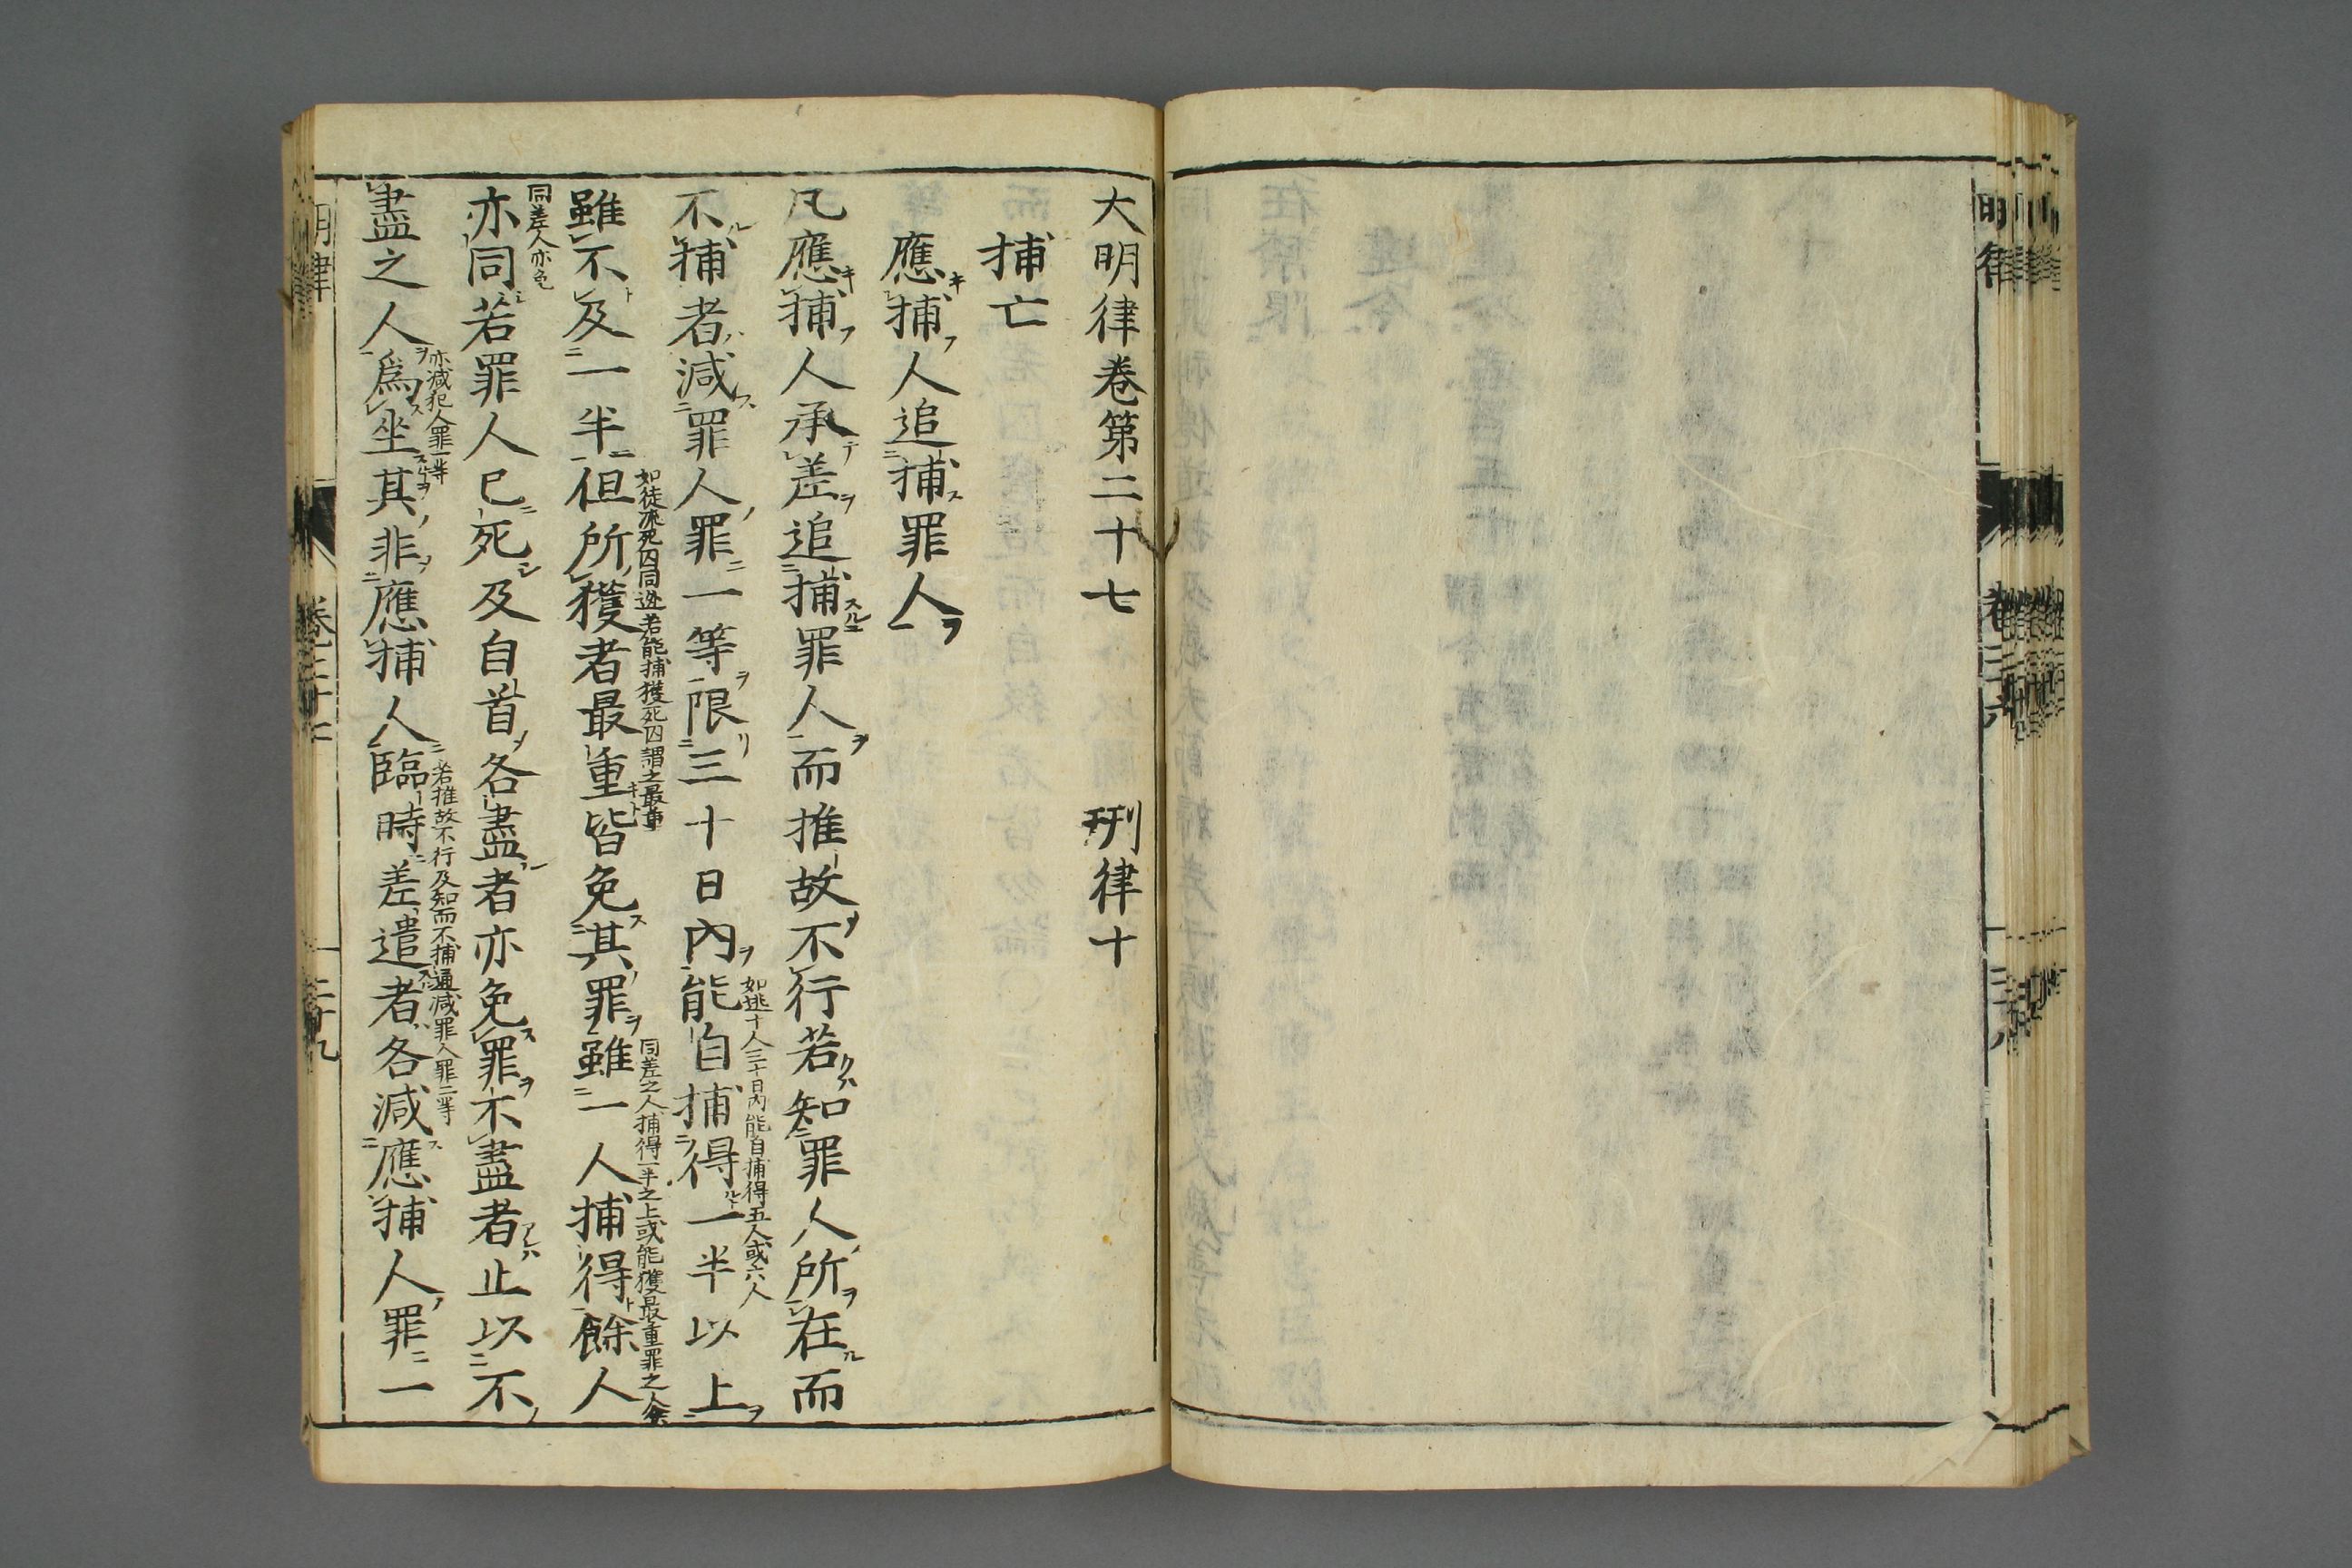 大明律卷第二十七　刑律十
捕亡
應捕人追捕罪人
凡應捕人承差追捕罪人而推故不行若知罪人所在而
不捕者減罪人罪一等限三十日內能自捕得一半以上
如逃十人三十日內能自捕得五人或六人
雖不及一半但所獲者最重皆免其罪雖一人捕得餘人
如徒流死囚同逃若能捕獲死囚謂之最重
同差之人捕得一半之上或能獲最重罪之人余
同差人亦免
亦同若罪人已死及自首各盡者亦免罪不盡者止以不
盡之人爲坐其非應捕人臨時差遣者各減應捕人罪一
亦減犯人罪一等
若推故不行及知而不捕通減罪人罪二等
明律
卷二十七
二十九
明律